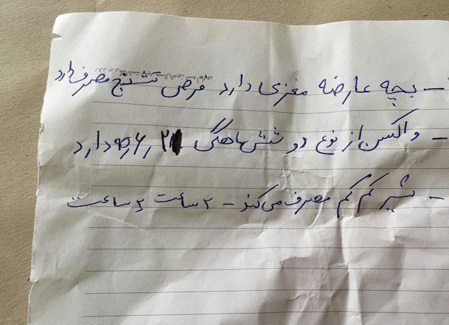 - بچه عارضه مغزی دارد قرص تشنج مصرف دارد
- واکسن از نوع دو شش ماهگی دارد
- شیر کم کم مصرف می‌کند - ۲ ساعت ۲ ساعت